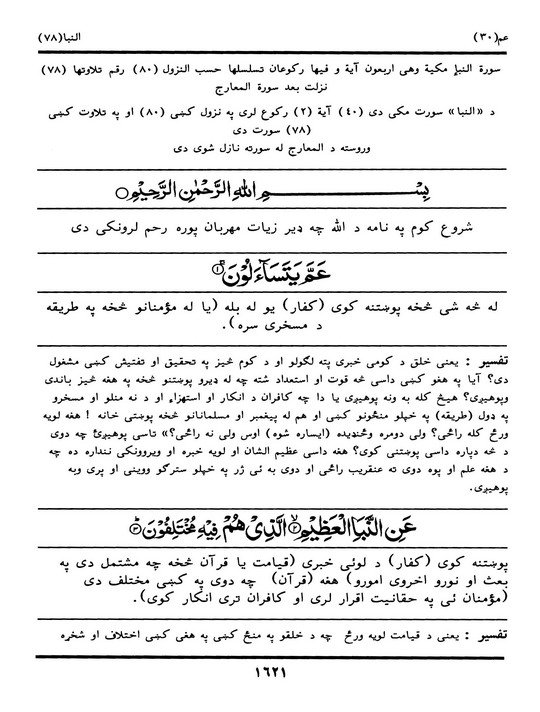 عم(۳۰) النبا(۷۸)
سورة النبإ مكية وهى اربعون آية و فيها ركوعان تسلسلها حسب النزول (۸۰) رقم تلاوتها (۷۸)
نزلت بعد سورة المعارج
د «النبا» سورت مکی دی (۴۰) آیة (۲) رکوع لری په نزول کښی (۸۰) او په تلاوت کښی
(۷۸) سورت دی
وروسته د المعارج له سورته نازل شوی دی
بِسْــــــمِ اللهِ الرَّحْمٰنِ الرَّحِيْمِ ○
شروع کوم په نامه د الله چه ډیر زیات مهربان پوره رحم لرونکی دی
عَمَّ يَتَسَآءَلُوْنَ ۚ﴿۱﴾
له څه شی څخه پوښتنه کوی (کفار) یو له بله (یا له مؤمنانو څخه په طریقه
د مسخری سره).
تفسیر : یعنی خلق د کومی خبری پته لگولو او د کوم څیز په تحقیق او تفتیش کښی مشغول
دی؟ آیا په هغو کښی داسی څه قوت او استعداد شته چه له ډیرو پوښتنو څخه په هغه څیز باندی
وپوهیږی؟ هیڅ کله به ونه پوهیږی یا دا چه کافران د انکار او استهزاء او د نه منلو او مسخرو
په ډول (طریقه) په خپلو منځونو کښی او هم له پیغمبر او مسلمانانو څخه پوښتی خانه ! هغه لویه
ورځ کله راځی؟ ولی دومره وځنډیده (ایساره شوه) اوس ولی نه راځی؟» تاسی پوهیږئ چه دوی
د څه دپاره داسی پوښتنی کوی؟ هغه داسی عظیم الشان او لویه خبره او ویروونکی ننداره ده چه
د هغه علم او پوه دوی ته عنقریب راځی او دوی به ئی ژر په خپلو سترگو ووینی او پری وبه
پوهیږی.
عَنِ النَّبَاِ الْعَظِيْمِ ۙ﴿۲﴾ الَّذِىْ هُمْ فِيْهِ مُخْتَلِفُوْنَ ؕ﴿۳﴾
پوښتنه کوی (کفار) د لوئی خبری (قیامت یا قرآن څخه چه مشتمل دی په
بعث او نورو اخروی امورو) هغه (قرآن) چه دوی په کښی مختلف دی
(مؤمنان ئی په حقانیت اقرار لری او کافران تری انکار کوی).
تفسیر : یعنی د قیامت لویه ورځ چه د خلقو په منځ کښی په هغی کښی اختلاف او شخړه
۱۶۲۱